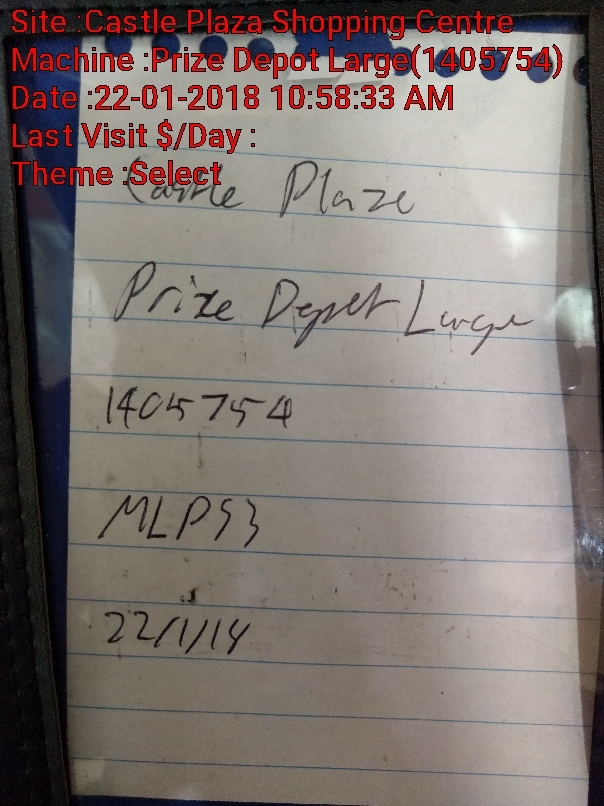 Site :Castle Plaza Shopping Centre
Machine :Prize Depot Large(1405754)
Date :22-01-2018 10:58:33 AM
Last Visit $/Day :
Theme :Select
Castle Plaze
Prize Depot Large
1405754
MLP53
22/1/14